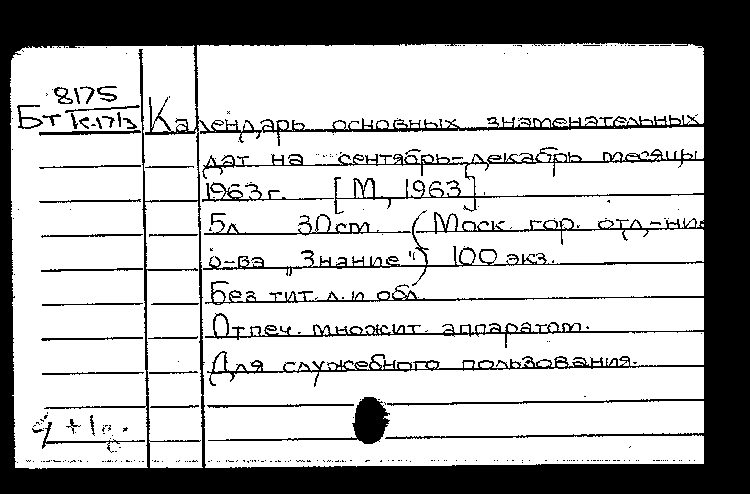 8175
Бт К-17/3
Календарь основных знаменательных
дат на сентябрь-декабрь месяцы
1963 г. [М, 1963].
5л 30 см. (Моск. гор. отд-ние
о-ва „Знание“) 100 экз.
Без тит. л. и обл.
Отпеч. множит. аппаратом.
Для служебного пользования.